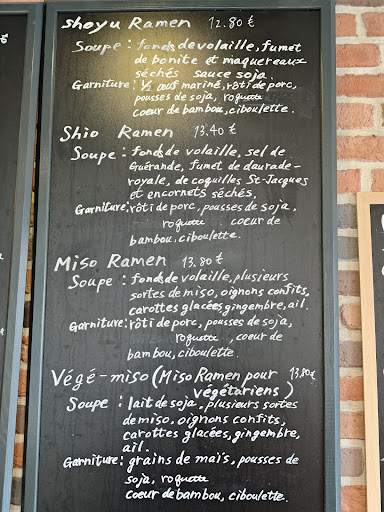 Shoyu Ramen 12.80 €
Soupe : fonds de volaille, fumet
de bonite et maquereaux
séchés sauce soja.
Garniture : ½ œuf mariné, rôti de porc,
pousses de soja, roquette
coeur de bambou, ciboulette.
Shio Ramen 13.40 €
Soupe : fonds de volaille, sel de
Guérande, fumet de daurade-
royale, de coquilles St-Jacques
et encornets séchés.
Garniture : rôti de porc, pousses de soja,
roquette coeur de
bambou, ciboulette.
Miso Ramen 13.80 €
Soupe : fonds de volaille, plusieurs
sortes de miso, oignons confits,
carottes glacées, gingembre, ail.
Garniture : rôti de porc, pousses de soja,
roquette , coeur de
bambou, ciboulette.
Végé-miso (Miso Ramen pour 13.80€
végétariens)
Soupe : lait de soja, plusieurs sortes
de miso, oignons confits,
carottes glacées, gingembre,
ail.
Garniture : grains de maïs, pousses de
soja, roquette
coeur de bambou, ciboulette.